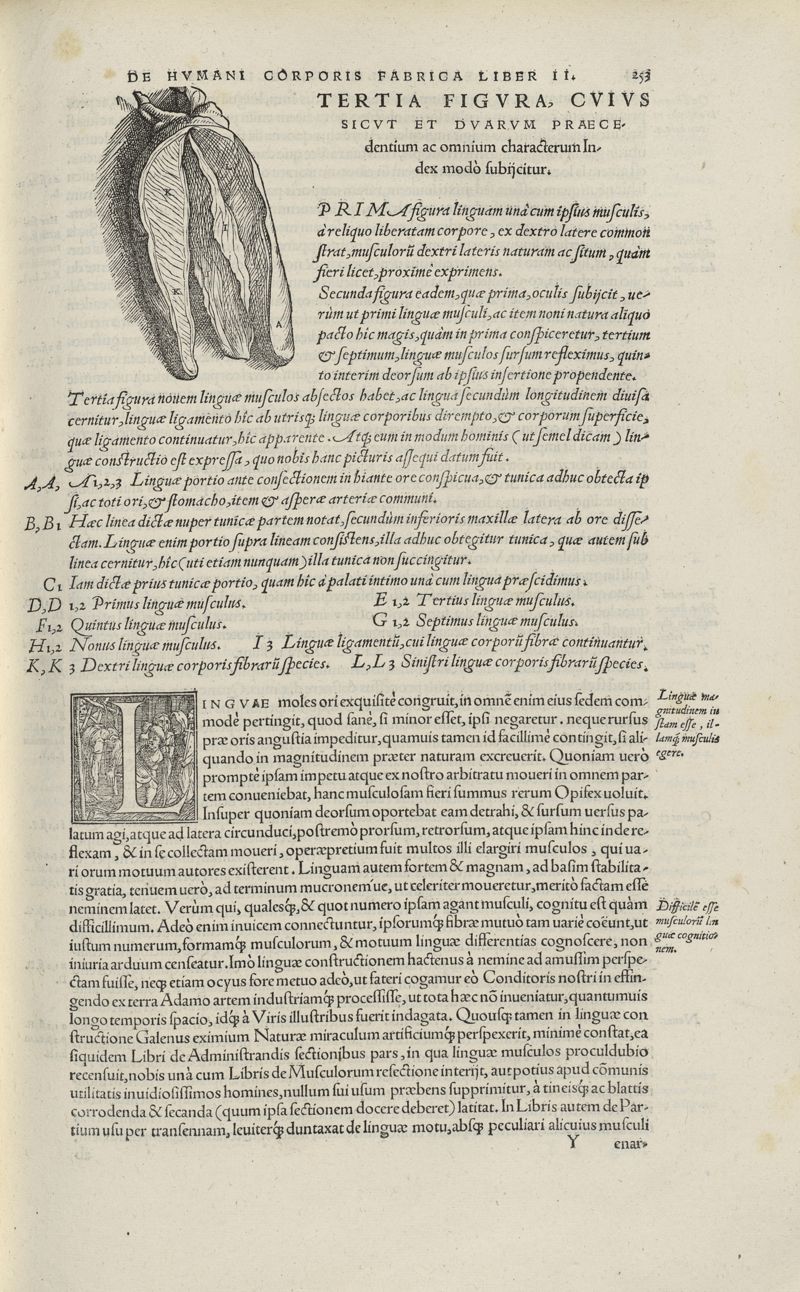 DE HVMANI CORPORIS FABRICA LIBER II. 253
TERTIA FIGVRA, CVIVS
SICVT ET DVARVM PRAECE-
dentium ac omnium characterum In-
dex modò ſubijcitur.
PRIMA figura linguam unà cum ipſius muſculis,
à reliquo liberatam corpore, ex dextro latere commōn
ſtrat, muſculorū dextri lateris naturam ac ſitum, quàm
fieri licet, proximè exprimens.
Secunda figura eadem, quæ prima, oculis ſubijcit, ue-
rùm ut primi linguæ muſculi, ac item noni natura aliquo
pacto hic magis, quàm in prima conſpiceretur, tertium
& ſeptimum, linguæ muſculos ſurſum reflexímus, quin-
to interim deorſum ab ipſius inſertione propendente.
Tertia figura nonem linguæ muſculos abſectos habet, ac lingua ſecundùm longitudinem diuiſa
cernitur, linguæ ligamento hîc ab utrisq; linguæ corporibus dirempto, & corporum ſuperficie,
quæ ligamento continuatur, hîc apparente. Atq; eum in modum hominis (ut ſemel dicam) lin-
guæ conſtructio eſt expreſſa, quo nobis hanc picturis aſſequi datum fuit.
A, A, A 1, 2, 3 Linguæ portio ante conſectionem in hiante ore conſpicua, & tunica adhuc obtecta ip
ſi, ac toti ori, & ſtomacho, item & aſperæ arteriæ communi.
B, B 1 Hæc linea dictæ nuper tunicæ partem notat, ſecundùm inferioris maxillæ latera ab ore diſſe-
ctam. Linguæ enim portio ſupra lineam conſiſtens, illa adhuc obtegitur tunica, quæ autem ſub
linea cernitur, hîc (uti etiam nunquam) illa tunica non ſuccingitur.
C 1 Iam dictæ prius tunicæ portio, quam hîc à palati intimo unà cum lingua præſcidimus.
D, D 1, 2 Primus linguæ muſculus. E 1, 2 Tertius linguæ muſculus.
F 1, 2 Quintus linguæ muſculus. G 1, 2 Septimus linguæ muſculus.
H 1, 2 Nonus linguæ muſculus. I 3 Linguæ ligamentū, cui linguæ corporū fibræ continuantur.
K, K 3 Dextri linguæ corporis fibrarū ſpecies. L, L 3 Siniſtri linguæ corporis fibrarū ſpecies.
LINGVAE moles ori exquiſitè congruit, in omnē enim eius ſedem com-
modè pertingit, quod ſanè, ſi minor eſſet, ipſi negaretur. neque rurſus
præ oris anguſtia impeditur, quamuis tamen id facillimè contingit, ſi ali-
quando in magnitudinem præter naturam excreuerit. Quoniam uerò
promptè ipſam impetu atque ex noſtro arbitratu moueri in omnem par-
tem conueniebat, hanc muſculoſam fieri ſummus rerum Opifex uoluit.
Inſuper quoniam deorſum oportebat eam detrahi, & ſurſum uerſus pa-
latum agi, atque ad latera circunduci, poſtremò prorſum, retrorſum, atque ipſam hinc inde re-
flexam, & in ſe collectam moueri, operæpretium fuit multos illi elargiri muſculos, qui ua-
ri orum motuum autores exiſterent. Linguam autem fortem & magnam, ad baſim ſtabilita-
tis gratia, tenuem uerò, ad terminum mucronem'ue, ut celeriter moueretur, meritò factam eſſe
neminem latet. Verùm qui, qualesq́;, & quot numero ipſam agant muſculi, cognitu eſt quàm
difficillimum. Adeò enim inuicem connectuntur, ipſorumq́; fibræ mutuò tam uariè coëunt, ut
iuſtum numerum, formamq́; muſculorum, & motuum linguæ differentias cognoſcere, non
iniuria arduum cenſeatur. Imò linguæ conſtructionem hactenus à nemine ad amuſsim perſpe-
ctam fuiſſe, neq; etiam ocyus fore metuo adeò, ut fateri cogamur eò Conditoris noſtri in effin-
gendo ex terra Adamo artem induſtriamq́; proceſsiſſe, ut tota hæc nō inueniatur, quantumuis
longo temporis ſpacio, idq́; à Viris illuſtribus fuerit indagata. Quouſq; tamen in linguæ con
ſtructione Galenus eximium Naturæ miraculum artificiumq́; perſpexerit, minimè conſtat, ea
ſiquidem Libri de Adminiſtrandis ſectionibus pars, in qua linguæ muſculos proculdubio
recenſuit, nobis unà cum Libris de Muſculorum reſectione interijt, aut potius apud cōmunis
utilitatis inuidioſiſsimos homines, nullum ſui uſum præbens ſupprimitur, à tineisq́; ac blattis
corrodenda & ſecanda (quum ipſa ſectionem docere deberet) latitat. In Libris autem de Par-
tium uſu per tranſennam, leuiterq́; duntaxat de linguæ motu, abſq; peculiari alicuius muſculi
Y enar-
Linguæ ma-
gnitudinem in
ſtam eſſe, il-
lamq́; muſculis
egere.
Difficilē eſſe
muſculorū lin
guæ cognitio-
nem.
K
K
L
I
A